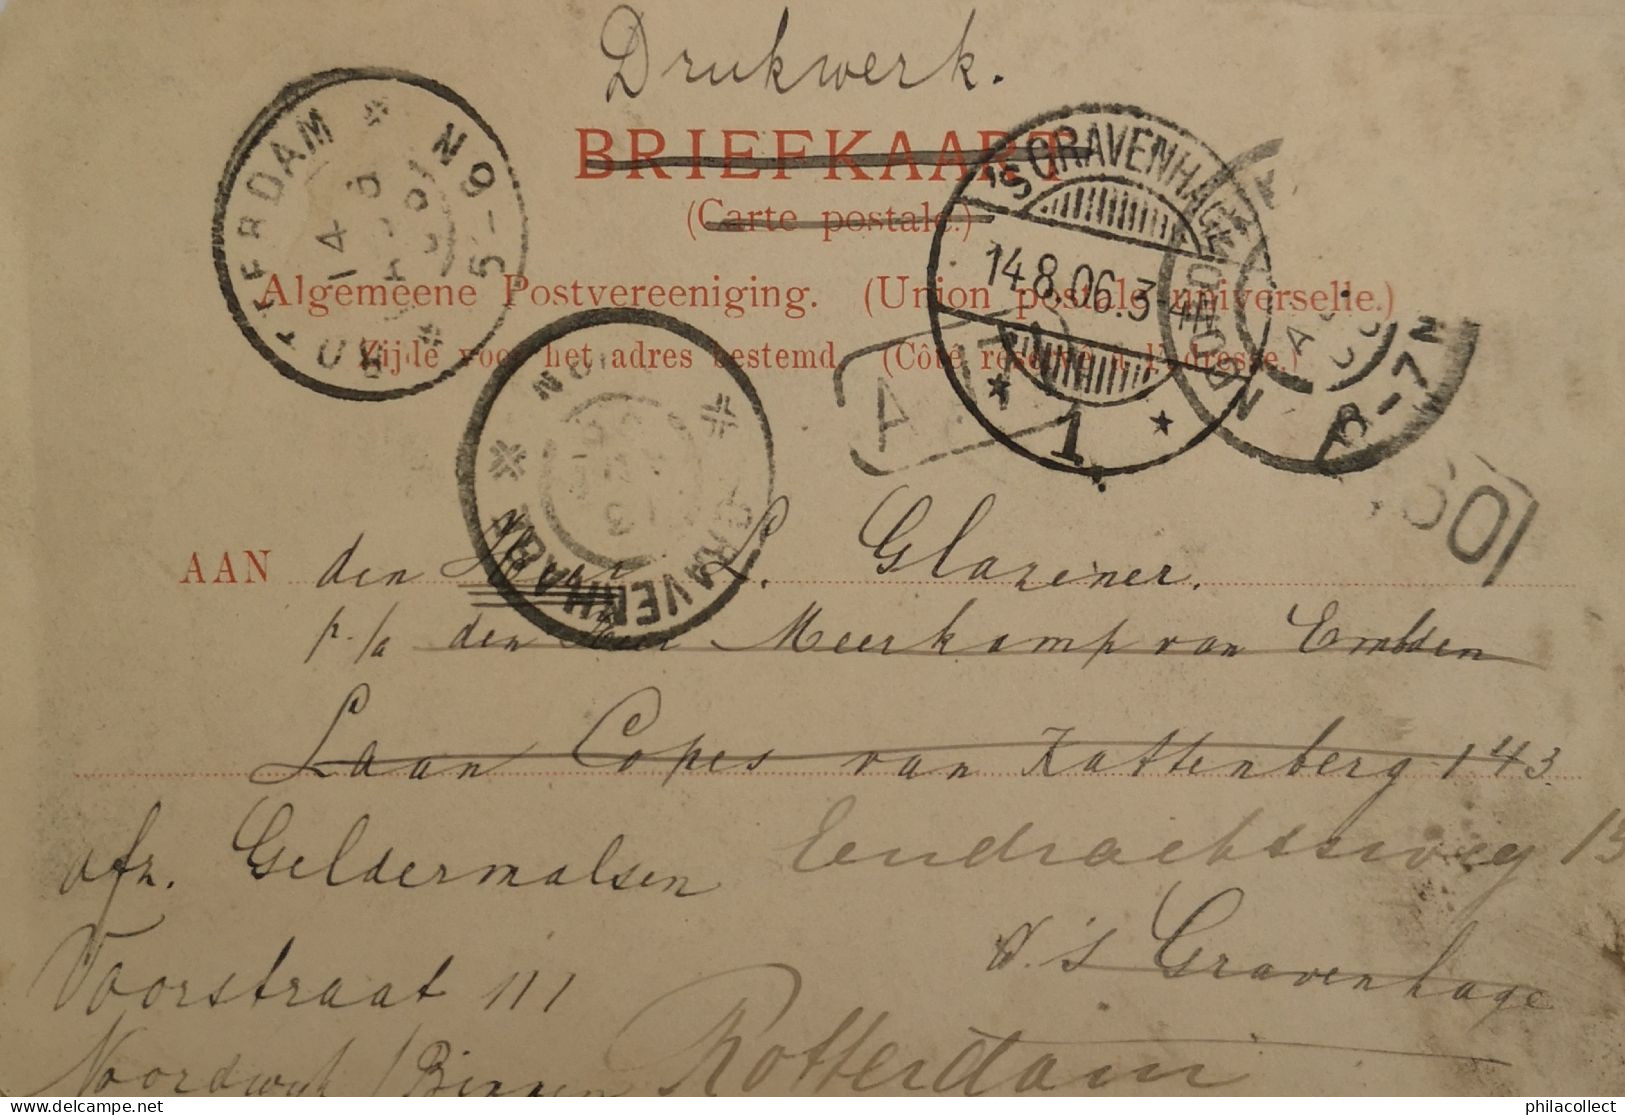 Drukwerk.
BRIEFKAART
(Carte postale.)
Algemeene Postvereeniging. (Union postale universelle.)
Zijde voor het adres bestemd. (Côté réservé à l'adresse.)
ROTTERDAM * N9 *
5-
14
'S GRAVENHAGE
14.8.06.3-4N
* 1 *
-7N
'S GRAVENHAGE
AAN den Heer L. Glazener.
p./a den Heer Meerkamp van Embden
Laan Copes van Kattenberg 143
afz. Geldermalsen Eendrachtsweg 15
Voorstraat 111 's Gravenhage
Noordwijk / Binnen Rotterdam
philacollect